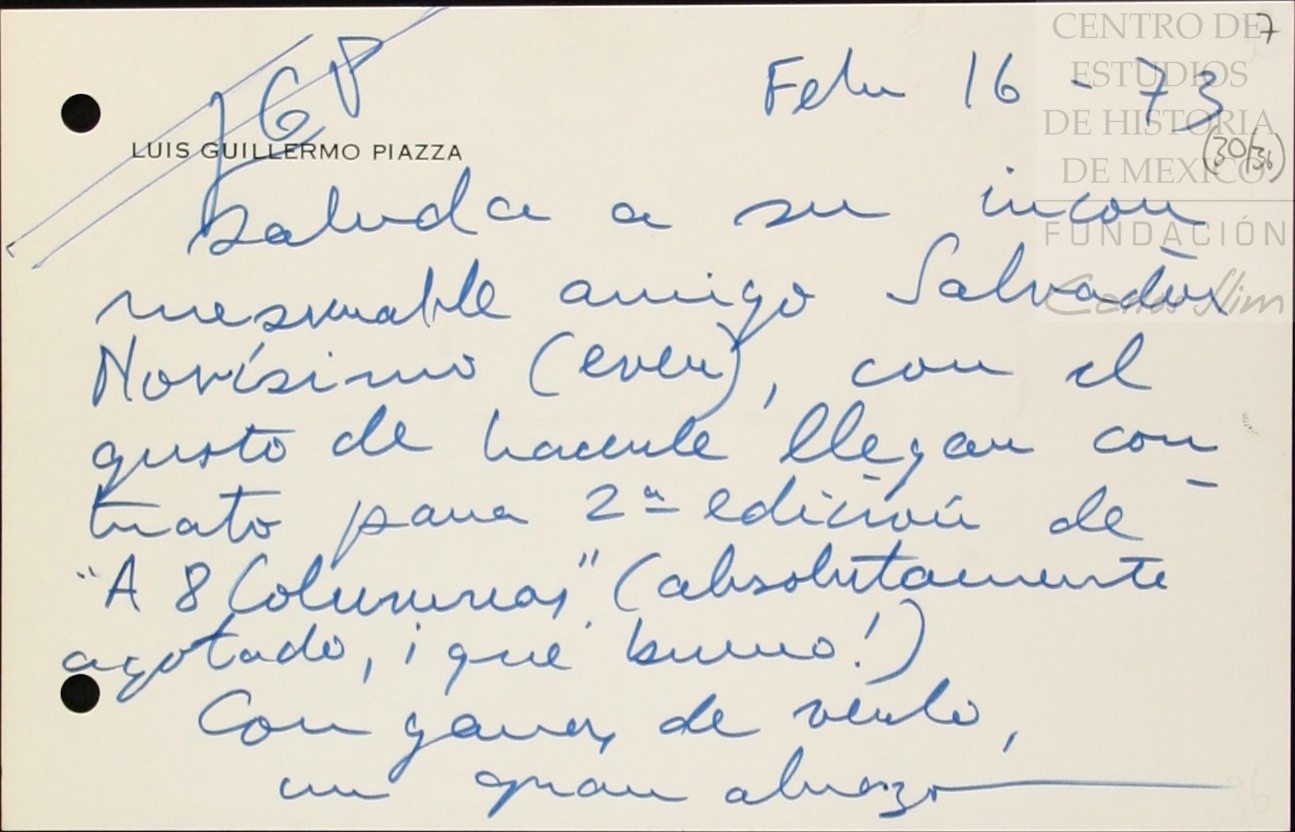 7
CENTRO DE
ESTUDIOS
DE HISTORIA
DE MEXICO
FUNDACIÓN
Carlos Slim
(30/36)
LGP
Febr 16 - 73
LUIS GUILLERMO PIAZZA
saluda a su incon
mesurable amigo Salvador
Novísimo (ever), con el
gusto de hacerle llegar con-
trato para 2ª edición de
"A 8 Columnas" (absolutamente
agotado, ¡qué bueno!)
Con ganas de verlo,
un gran abrazo